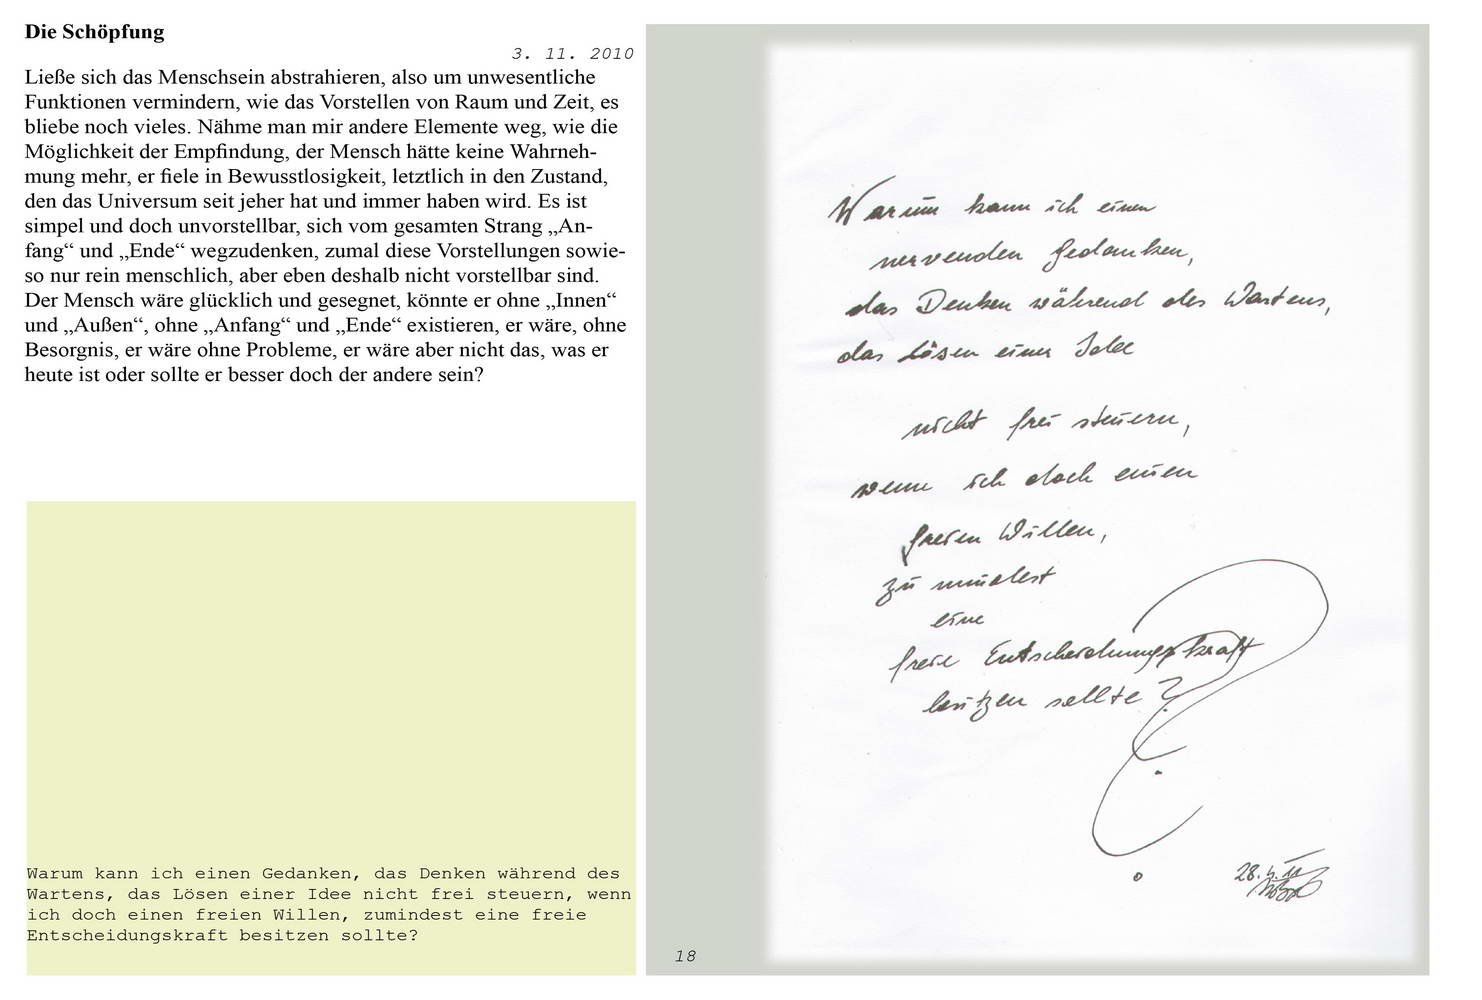 Die Schöpfung
3. 11. 2010
Ließe sich das Menschsein abstrahieren, also um unwesentliche
Funktionen vermindern, wie das Vorstellen von Raum und Zeit, es
bliebe noch vieles. Nähme man mir andere Elemente weg, wie die
Möglichkeit der Empfindung, der Mensch hätte keine Wahrneh-
mung mehr, er fiele in Bewusstlosigkeit, letztlich in den Zustand,
den das Universum seit jeher hat und immer haben wird. Es ist
simpel und doch unvorstellbar, sich vom gesamten Strang „An-
fang“ und „Ende“ wegzudenken, zumal diese Vorstellungen sowie-
so nur rein menschlich, aber eben deshalb nicht vorstellbar sind.
Der Mensch wäre glücklich und gesegnet, könnte er ohne „Innen“
und „Außen“, ohne „Anfang“ und „Ende“ existieren, er wäre, ohne
Besorgnis, er wäre ohne Probleme, er wäre aber nicht das, was er
heute ist oder sollte er besser doch der andere sein?
Warum kann ich einen Gedanken, das Denken während des
Wartens, das Lösen einer Idee nicht frei steuern, wenn
ich doch einen freien Willen, zumindest eine freie
Entscheidungskraft besitzen sollte?
Warum kann ich einen
nervenden Gedanken,
das Denken während des Wartens,
das Lösen einer Idee
nicht frei steuern,
wenn ich doch einen
freien Willen,
zumindest
eine
freie Entscheidungskraft
besitzen sollte?
28.4.11
18